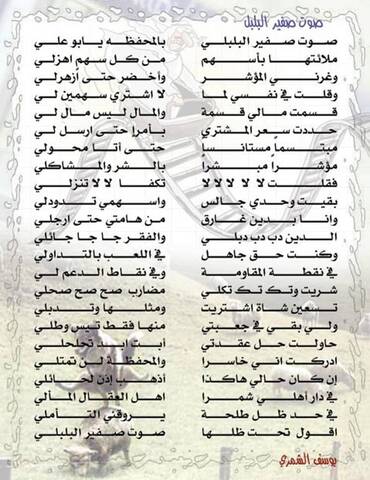 صوت صفير البلبل
صوت صفير البلبلي بالمحفظه يابو علي
ملائتها بأسهم من كل سهم اهزلي
وغرني المؤشر وأخضر حتى أزهرلي
وقلت في نفسي لما لا اشتري سهمين لي
قسمت مالي قسمة والمال ليس مال لي
حددت سعر المشتري بأمرا حتى ارسل لي
مبتسماً مستانساً حتى أتا محولي
مؤشراً مبشراً بالشر والمشاكلي
فقلت لا لا لا لا لا تكفا لا لا تنزلي
بقيت وحدي جالس واسهمي تدودلي
وانا بدين غارق من هامتي حتى ارجلي
الدين دب دب دبلي والفقر جا جا جائلي
وكنت حق جاهل في اللعب بالتداولي
في نقطة المقاومة وفي نقاط الدعم لي
شريت وتك تك تكلي مضارب صح صح صحلي
تسعين شاة اشتريت ومثلها وتدبلي
ولى بقي في جعبتي منها فقط تيس وطلي
حاولت حل عقدتي أبت ابت تحلحلي
ادركت اني خاسرا والمحفظة لن تمتلي
إن كان حالي هاكذا أذهب إذن لحائلي
في دار أهلي شمرا اهل العقال المألي
في حد ظل طلحة يروقني التأملي
اقول تحت ظلها صوت صفير البلبلي
يوسف الشمري